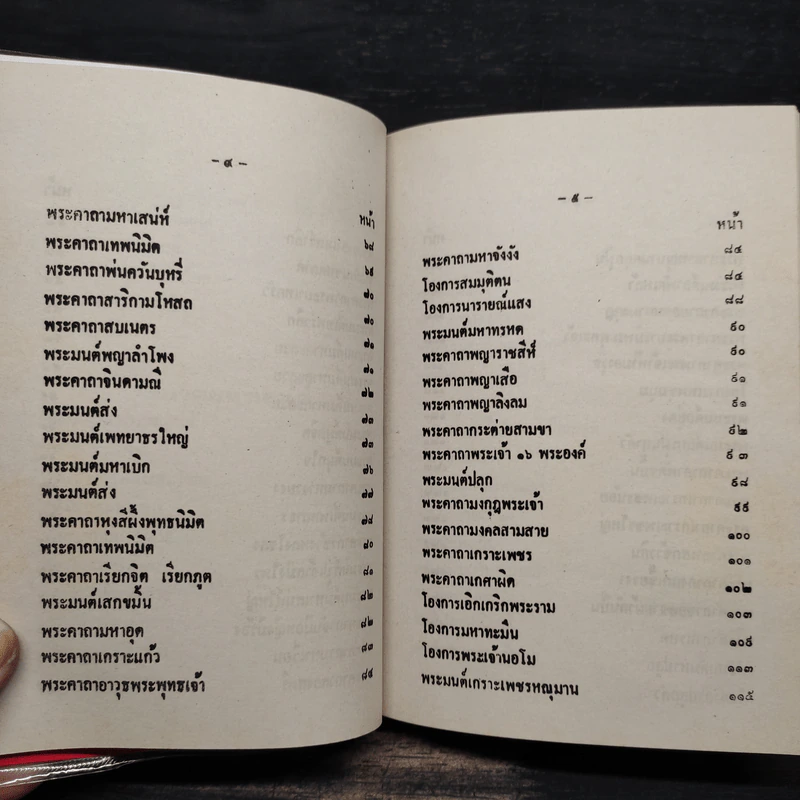 - ๔ -
หน้า
พระคาถามหาเสน่ห์ ๖๘
พระคาถาเทพนิมิต ๖๙
พระคาถาพ่นควันบุหรี่ ๗๐
พระคาถาสาริกามโหสถ ๗๐
พระคาถาสบเนตร ๗๑
พระมนต์พญาลำโพง ๗๑
พระคาถาจินดามณี ๗๒
พระมนต์ส่ง ๗๓
พระมนต์เพทยาธรใหญ่ ๗๓
พระมนต์มหาเบิก ๗๖
พระมนต์ส่ง ๗๗
พระคาถาหุงสีผึ้งพุทธนิมิต ๗๘
พระคาถาเทพนิมิต ๘๐
พระคาถาเรียกจิต เรียกภูต ๘๑
พระมนต์เสกขมิ้น ๘๒
พระคาถามหาอุด ๘๒
พระคาถาเกราะแก้ว ๘๓
พระคาถาอาวุธพระพุทธเจ้า ๘๔
- ๕ -
หน้า
พระคาถามหาจังงัง ๘๔
โองการสมมุติตน ๘๔
โองการนารายณ์แสง ๘๘
พระมนต์มหาทรหด ๙๐
พระคาถาพญาราชสีห์ ๙๐
พระคาถาพญาเสือ ๙๑
พระคาถาพญาลิงลม ๙๑
พระคาถากระต่ายสามขา ๙๒
พระคาถาพระเจ้า ๑๖ พระองค์ ๙๓
พระมนต์ปลุก ๙๘
พระคาถามงกุฎพระเจ้า ๙๙
พระคาถามงคลสามสาย ๑๐๐
พระคาถาเกราะเพชร ๑๐๑
พระคาถาเกศาผิด ๑๐๒
โองการเอิกเกริกพระราม ๑๐๓
โองการมหาทะมื่น ๑๐๙
โองการพระเจ้านอโม ๑๑๓
พระมนต์เกราะเพชรหณุมาน ๑๑๕